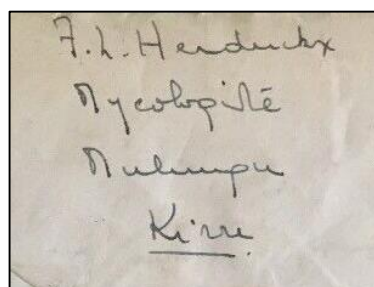 F.L. Hendrickx
Mycologiste
Mulungu
Kivu